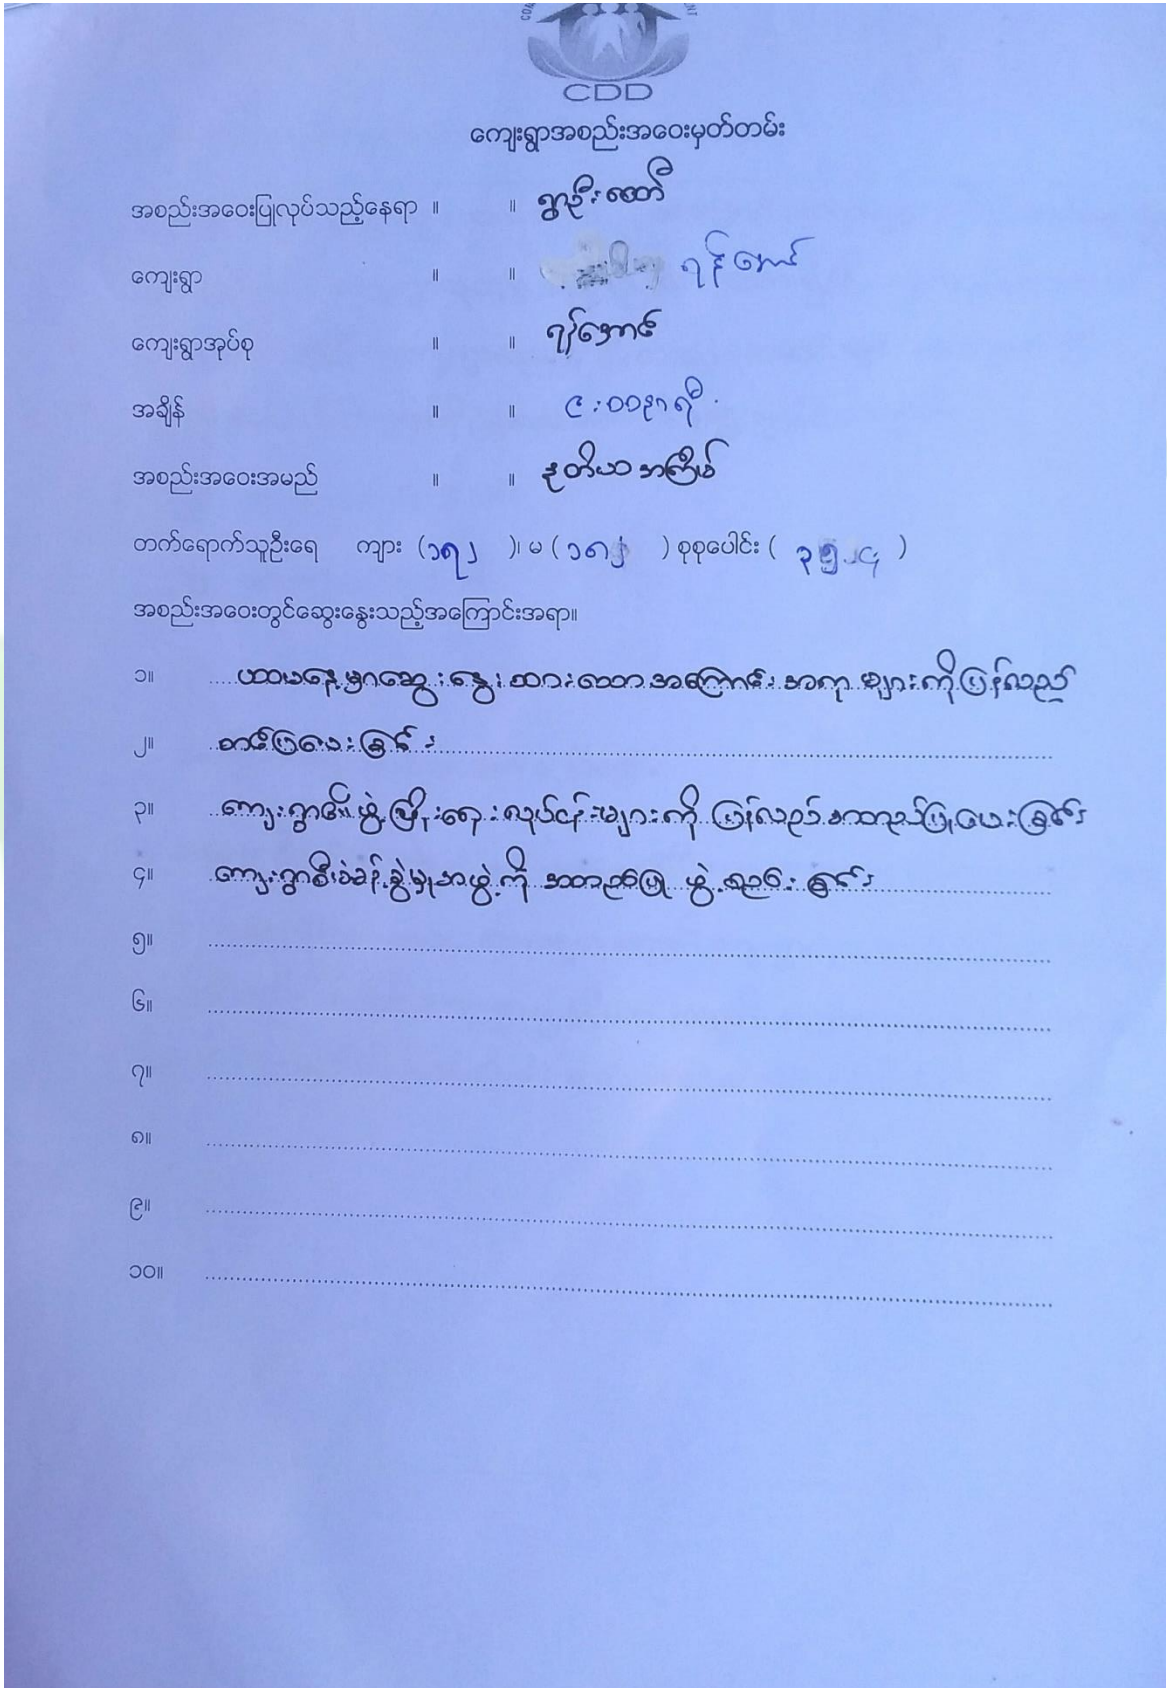 CDD
ကျေးရွာအစည်းအဝေးမှတ်တမ်း
အစည်းအဝေးပြုလုပ်သည့်နေရာ ။ ။ ရွာဦးတော်
ကျေးရွာ ။ ။ ရန်အောင်
ကျေးရွာအုပ်စု ။ ။ ရန်အောင်
အချိန် ။ ။ ၉:၀၀နာရီ
အစည်းအဝေးအမည် ။ ။ ဒုတိယအကြိမ်
တက်ရောက်သူဦးရေ ကျား (၁၇၂ )၊ မ ( ) စုစုပေါင်း ( )
အစည်းအဝေးတွင်ဆွေးနွေးသည့်အကြောင်းအရာ။
၁။ ယာမနေ့မှာဆွေးနွေးထားသော အကြောင်းအရာများကိုပြန်လည်
၂။ တင်ပြပေးခြင်း
၃။ ကျေးရွာ၏ဖွံ့ဖြိုးရေးလုပ်ငန်းများကို ပြန်လည်အတည်ပြုပေးခြင်း
၄။ ကျေးရွာစီမံခန့်ခွဲမှုအဖွဲ့ကို အတည်ပြု ဖွဲ့စည်းခြင်း
၅။
၆။
၇။
၈။
၉။
၁၀။